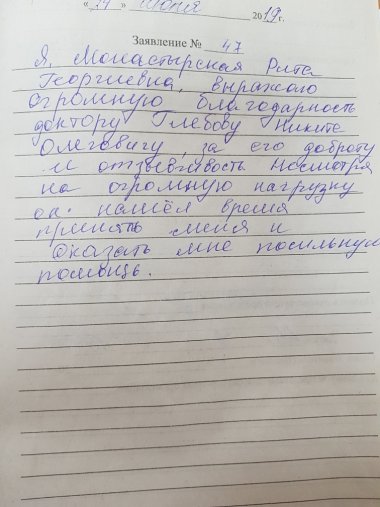 « 14 » июня 2019 г.
Заявление № 47
Я, Монастырская Рита
Георгиевна, выражаю
огромную благодарность
доктору Глебову Никите
Олеговичу, за его доброту
и отзывчивость. Несмотря
на огромную нагрузку
он нашёл время
принять меня и
оказать мне посильную
помощь.